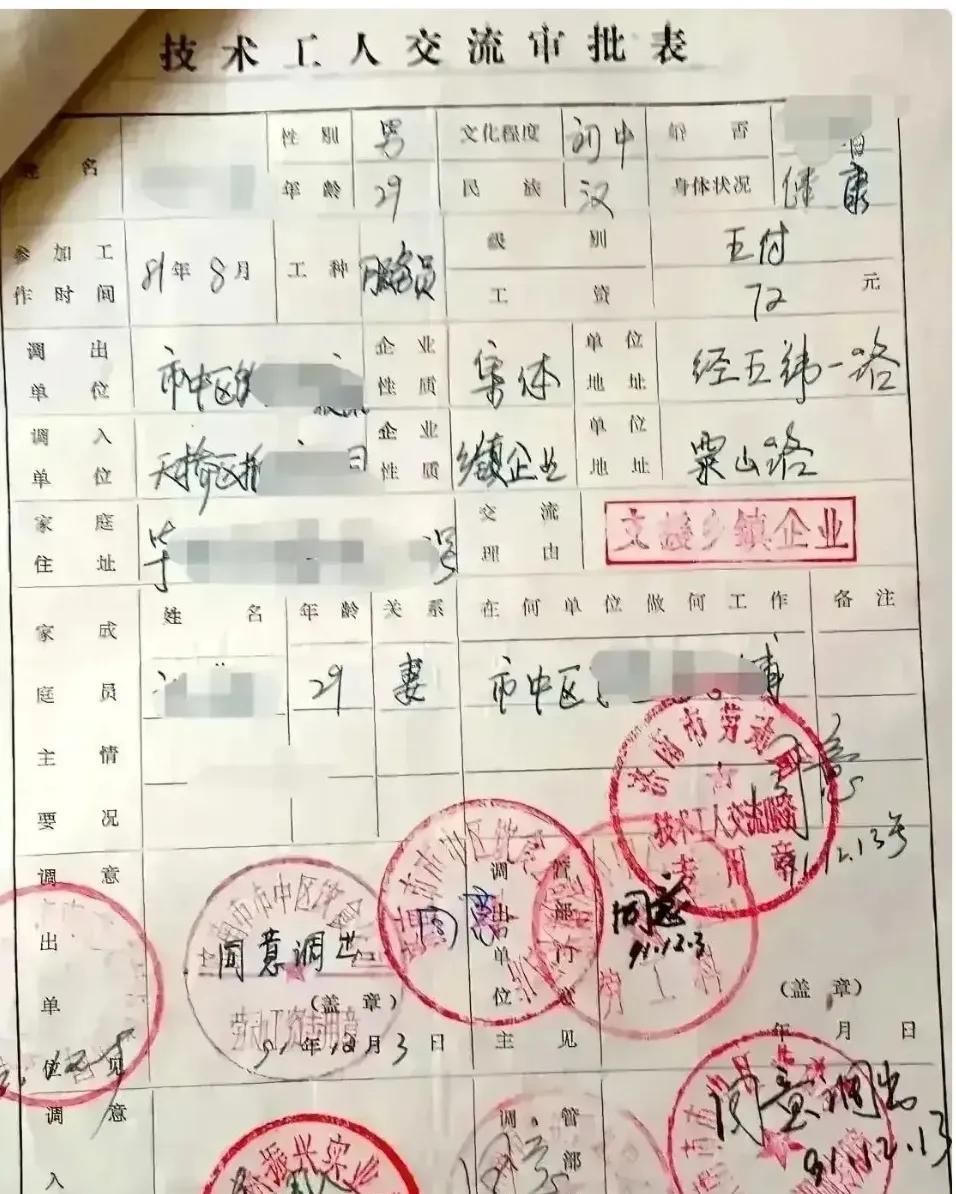 技术工人交流审批表
姓名 性别 男 文化程度 初中 婚否
年龄 29 民族 汉 身体状况 健康
参加工作时间 81年8月 工种 服务员 级别 五付
工资 72 元
调出单位 市中区 企业性质 集体 单位地址 经五纬一路
调入单位 天桥区 企业性质 乡镇企业 单位地址 粟山路
家庭住址 号 交流理由 支援乡镇企业
家庭成员主要情况 姓名 年龄 关系 在何单位做何工作 备注
29 妻 市中区
济南市劳动局
技术工人交流
专用章
同意
91.12.13号
调出单位意见 同意调出
劳动工资专用章
(盖章)
91年12月3日
调出单位主管部门意见 同意
91.12.3
劳工科
(盖章)
年 月 日
同意调出
91.12.13
调入 意
振兴实业
调 管
部